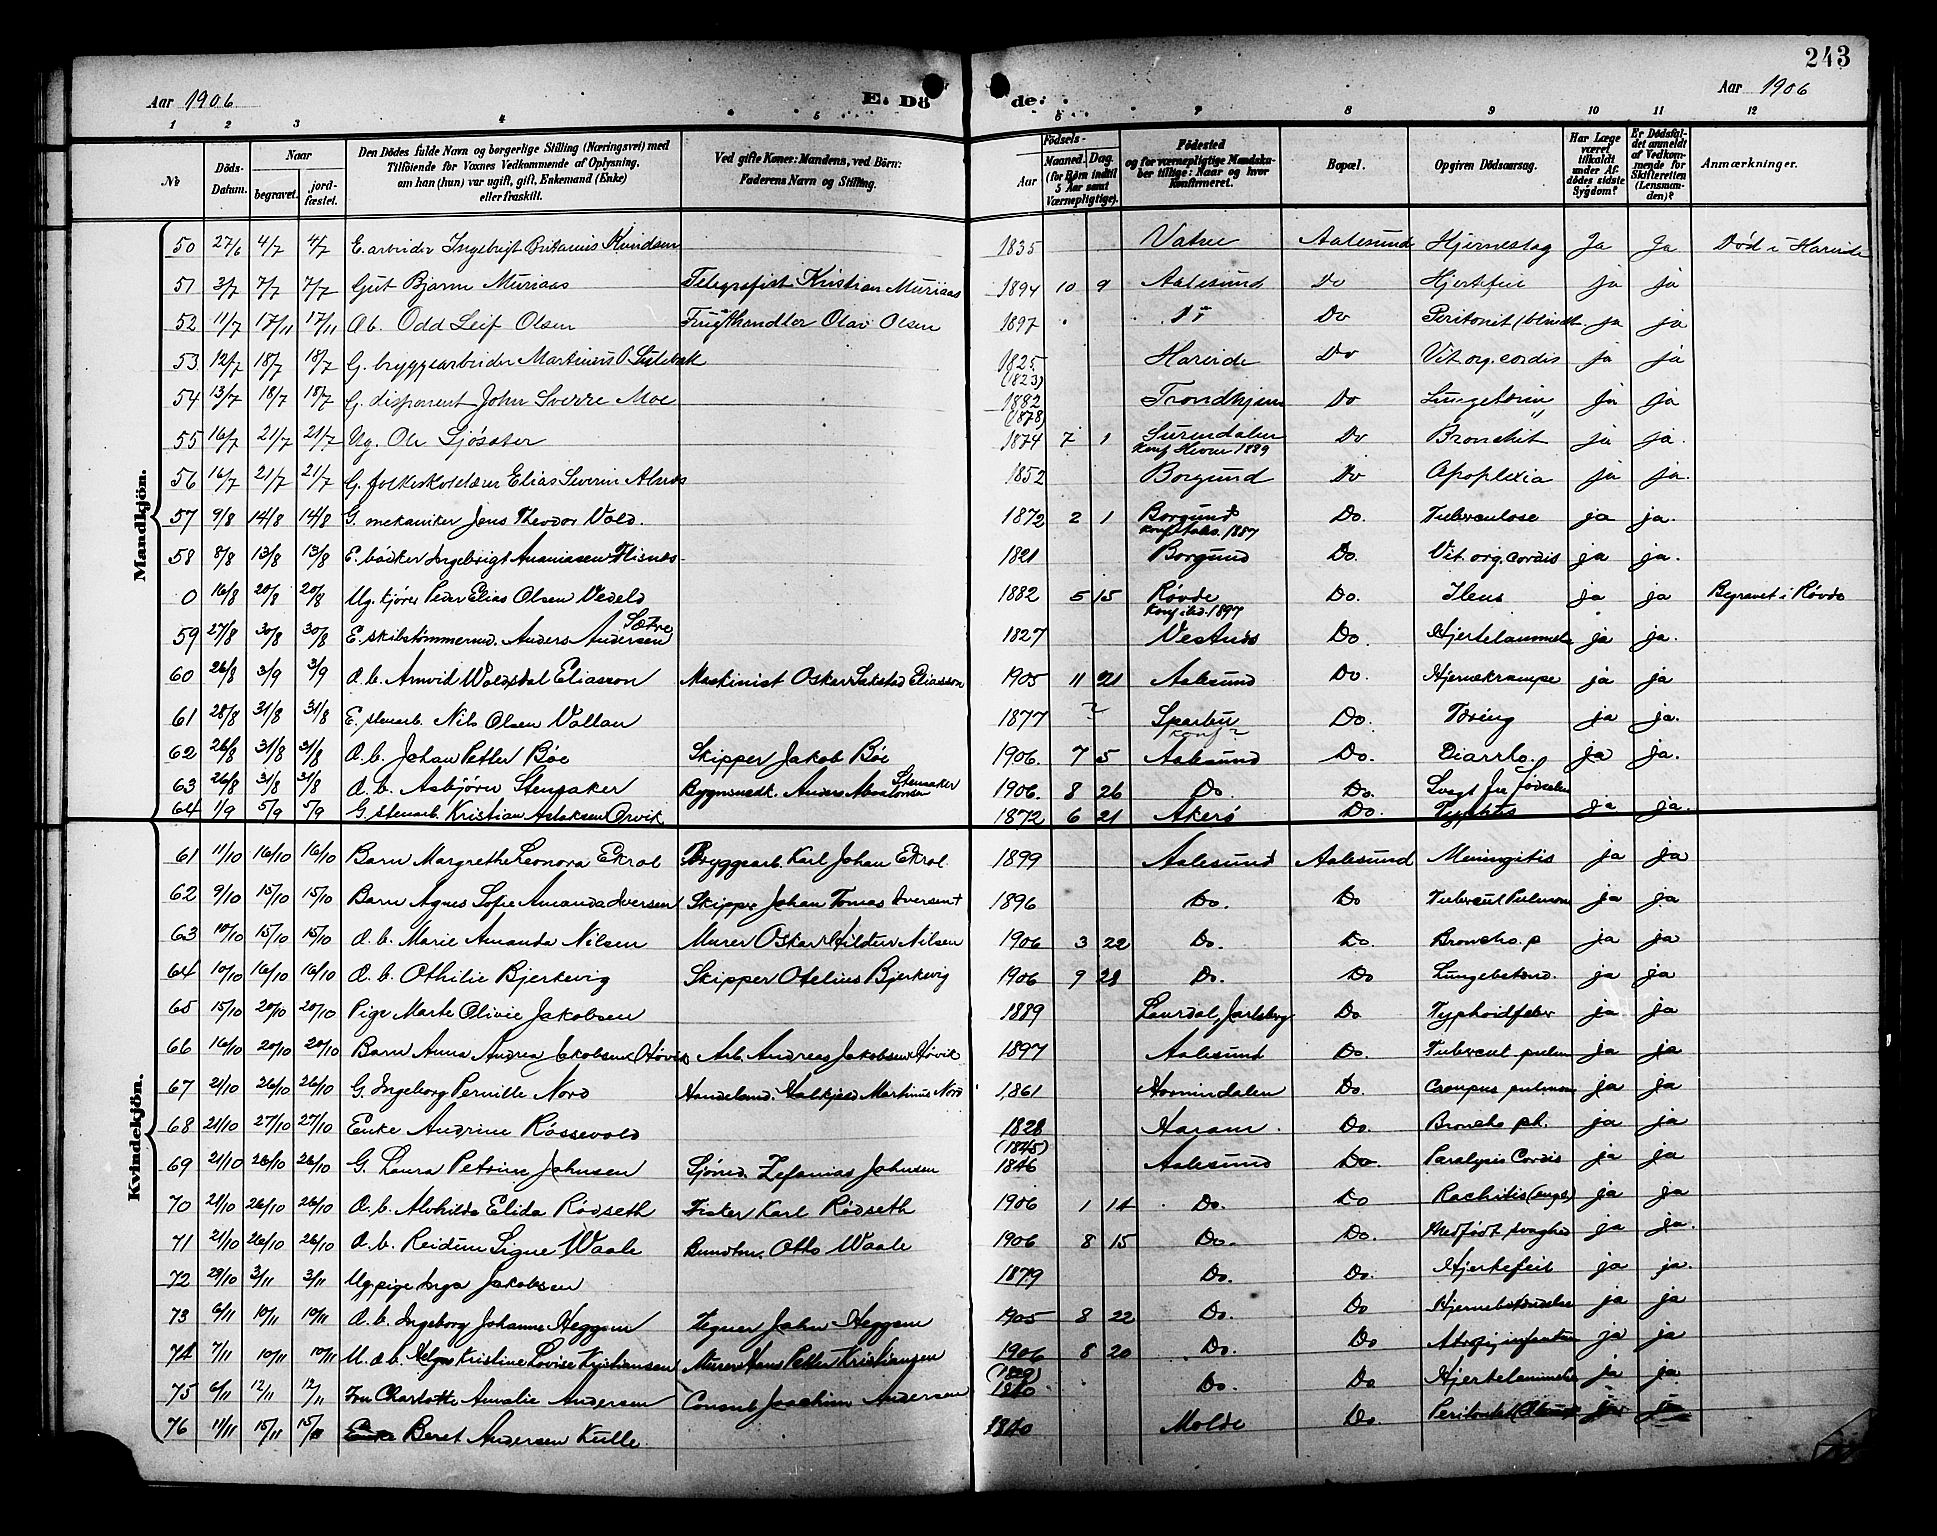 243
Aar 1906 E. Dö de: Aar 1906
1 2 3 4 5 6 7 8 9 10 11 12
№ Döds-Datum. Naar begravet. jord-fæstet. Den Dödes fulde Navn og borgerlige Stilling (Næringsvei) med Tilföiende for Voxnes Vedkommende af Oplysning, om han (hun) var ugift, gift, Enkemand (Enke) eller fraskilt. Ved gifte Koner: Mandens, ved Börn: Faderens Navn og Stilling. Födsels- Aar Maaned. Dag. (for Börn indtil 5 Aar samt Værnepligtige). Födested og for værnepligtige Mandskaber tillige: Naar og hvor konfirmeret. Bopæl. Opgiven Dödsaarsag. Har Læge været tilkaldt under Afdödes sidste Sygdom? Er Dödsfaldet anmeldt af Vedkommende for Skifteretten (Lensmanden)? Anmærkninger.
Mandkjön.
50 27/6 4/7 4/7 E. arbeider Ingebrigt Knudsen 1835 Vatne Aalesund Hjerneslag Ja Ja Död i Hareide
51 3/7 7/7 7/7 Gut Bjarne Muriaas Telegrafist Kristian Muriaas 1894 10 9 Aalesund Do Hjertefeil ja ja
52 11/7 17/11 17/11 O. b. Odd Leif Olsen Frugthandler Olav Olsen 1897 Do Peritonit (blindt. ja ja
53 12/7 18/7 18/7 G. bryggearbeider Martinus O. 1825 (1823) Hareide Do Vit. org. cordis ja ja
54 13/7 18/7 18/7 G. disponent John Sverre Moe 1882 (1878) Trondhjem Do Lungetæring ja ja
55 16/7 21/7 21/7 Ug. Ole Sjösæter 1874 7 1 Surendalen Konf. 1889 Do Bronchit ja ja.
56 16/7 21/7 21/7 G. folkeskolelærer Elias Severin Alnæs 1852 Borgund Do Apoplexia ja ja.
57 9/8 14/8 14/8 G. mekaniker Jens Theodor Vold. 1872 2 1 Borgund Konf. Aales. 1887 Do. Tuberculose ja ja.
58 8/8 13/8 13/8 E. bödker Ingebrigt Ananiassen Flisnes 1821 Borgund Do. Vit. org. cordis ja ja.
0 16/8 20/8 20/8 Ug. kjører Peder Elias Olsen Vedeld 1882 5 15 Røvde Konf. ibd. 1897 Do. Ileus ja ja Begravet i Røvde
59 27/8 30/8 30/8 E. skibstømmermd. Anders Andersen Sætre 1827 Vestnes Do. Hjertelammelse ja ja.
60 26/8 3/9 3/9 O. b. Arnvid Eliasson Maskinist Oskar Eliasson 1905 11 21 Aalesund Do. Hjernekrampe ja ja
61 28/8 31/8 31/8 E. stenarb. Nils Olsen Vallan 1877 ? Sparbu konf? Do. Tæring ja ja.
62 26/8 31/8 31/8 O. b. Johan Petter Bøe Skipper Jakob Bøe 1906. 7 5 Aalesund Do. Diarrho. ja ja.
63 26/8 31/8 31/8 O. b. Asbjörn Stensaker Bygmesk. Anders Stensaker 1906. 8 26 Do. Do. Svagt fra Fødselen
64 1/9 5/9 5/9 G. stenarb. Kristian Aslaksen Orvik 1872 6 21 Akerø Do. ja ja.
Kvindekjön.
61 11/10 16/10 16/10 Barn Margrethe Leonora Ekrol Bryggearb. Karl Johan Ekrol 1899 Aalesund Aalesund Meningitis ja ja
62 9/10 15/10 15/10 Barn Agnes Sofie Amanda Iversen Skipper Johan Tomas Iversen 1896 Do. Do Tubercul. Pulmon ja ja
63 10/10 15/10 15/10 O. b. Marie Amanda Nilsen Murer Oskar Hildur Nilsen 1906 3 22 Do. Do. Broncho. p ja ja
64 10/10 16/10 16/10 O. b. Othilie Bjerkevig Skipper Otelius Bjerkevig 1906 9 28 Do. Do Lungebetænd. ja ja
65 15/10 20/10 20/10 Pige Marte Olivie Jakobsen 1889 Laurdal, Jarlsberg Do Typhoidfeber ja ja
66 16/10 20/10 20/10 Barn Anna Andrea Jakobsen Høvik Arb. Andreas Jakobsen Høvik 1897 Aalesund Do. Tubercul. pulm ja ja
67 21/10 26/10 26/10 G. Ingeborg Pernille Nord Handelsmd. Martinus Nord 1861 Hornindalen Do. Croupus pulmon ja ja
68 21/10 27/10 27/10 Enke Andrine Røssevold 1828 Haram Do. Broncho ph. ja ja
69 21/10 26/10 26/10 G. Laura Petrine Johnsen Sjömd. Zefanias Johnsen (1845) 1846 Aalesund Do. Paralysis Cordis ja ja
70 21/10 26/10 26/10 O. b. Alvhilda Elida Rødseth Fisker Karl Rødseth 1906 1 14 Do. Do Rachitis (engl.) ja ja
71 21/10 26/10 26/10 O. b. Reidun Signe Waale Bundtm. Otto Waale 1906 8 15 Do. Do. Medfödt svaghed ja ja.
72 29/10 3/11 3/11 Ug. pige Inga Jakobsen 1879 Do. Do. Hjertefeil ja ja.
73 6/11 10/11 10/11 O. b. Ingeborg Johanne Heggem Tegner John Heggem 1905 8 22 Do. Do Hjernebetændelse ja ja
74 7/11 10/11 10/11 U. d. b. Helga Kristine Lovise Kristiansen Murer Jens Petter Kristiansen 1906 8 20 Do. Do Atrofi infantum ja ja
75 6/11 12/11 12/11 Fru Charlotte Amalie Andersen Consul Joachim Andersen 1840 Do. Do Hjertelammelse ja ja
76 11/11 15/11 15/11 Enke Beret Andersen Kulle 1840 Molde Do ja ja